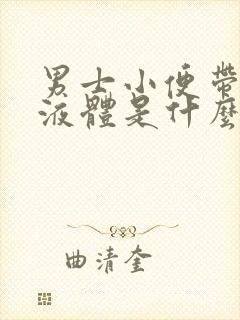 男士小便帶
液體是什麼
曲清奎